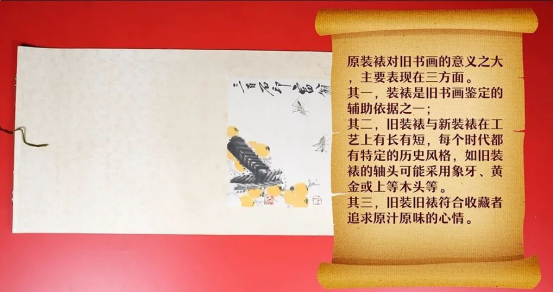 原装裱对旧书画的意义之大
，主要表现在三方面。
其一，装裱是旧书画鉴定的
辅助依据之一；
其二，旧装裱与新装裱在工
艺上有长有短，每个时代都
有特定的历史风格，如旧装
裱的轴头可能采用象牙、黄
金或上等木头等。
其三，旧装旧裱符合收藏者
追求原汁原味的心情。
三百石印富翁